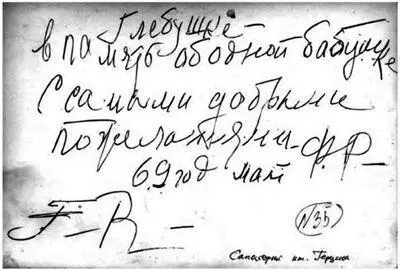 Глебушке —
в память об одной бабушке
С самыми добрыми
пожеланиями — Ф.Р —
69 год май
F — R —
N 35
Санаторий им. Герцена